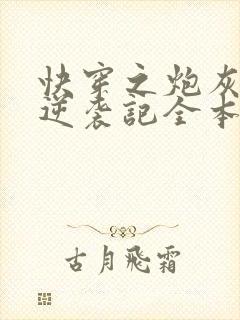 快穿之炮灰
逆袭記全本
古月飛霜